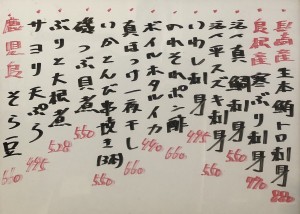 長崎産 生本鮪トロ刺身 880
島根産 寒ぶり刺身 770
活〆真鯛刺身 550
活〆平スズキ刺身 550
いわし刺身 495
のれそれポン酢 660
ボイルホタルイカ 440
真ほっけ一夜干し 660
いかとんび串焼き(3本) 550
磯つぶ貝煮 550
ぶりと大根煮 528
サヨリ天ぷら 495
鹿児島 そら豆